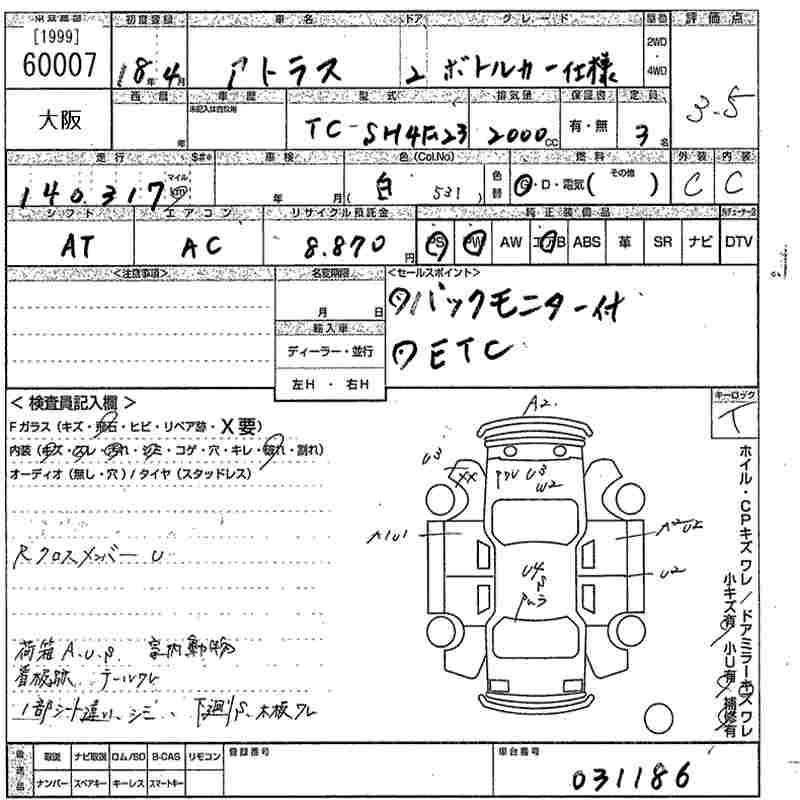 [1999]
60007
大阪
初度登録 車名 ドア グレード 駆動 評価点
18年4月 アトラス 2 ボトルカー仕様 2WD・4WD 3.5
西暦 車歴 型式 排気量 保証書 定員
未記入は自家用
年 TC-SH4F23 2000cc 有・無 3名
走行 車検 色(Col.No) 燃料 外装 内装
140.317 マイル km 年 月 白 531 色替 G・D・電気( その他 ) C C
シフト エアコン リサイクル預託金 純正装備品
AT AC 8.870円 PS PW AW エアB ABS 革 SR ナビ DTV
<注意事項> 名変期限 <セールスポイント>
月 日 バックモニター付
輸入車
ディーラー・並行 ETC
左H・右H
<検査員記入欄> キーロック
Fガラス(キズ・飛石・ヒビ・リペア跡・X要) T
内装(キズ・スレ・汚れ・シミ・コゲ・穴・キレ・破れ・割れ)
オーディオ(無し・穴)/タイヤ(スタッドレス)
Rクロスメンバー U
荷箱 A.U.P. 室内動物
看板跡 テールワレ
1部シート違い、シミ、下廻りS、木板ワレ
A2
U3
XX
U3
W2
A1U1
A2 U2
U2
U4
S
ホイル・CPキズ ワレ/ドアミラーキズ ワレ
小キズ有 小U有 補修有
取説 ナビ取説 ロム/SD B-CAS リモコン 登録番号 車台番号
ナンバー スペアキー キーレス スマートキー 031186